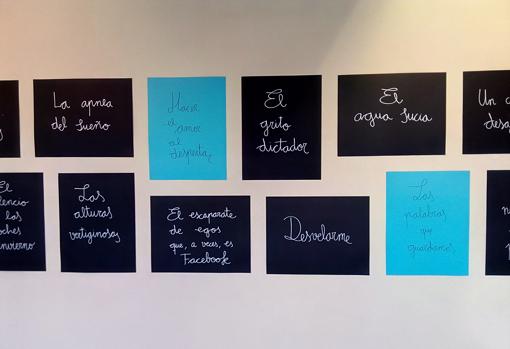 La apnea
del sueño
Hacer
el amor
al
despertar
El
grito
dictador
El
agua sucia
Un
desa
El
lencio
las
oches
invierno
Las
alturas
vertiginosas
El escaparate
de egos
que, a veces, es
Facebook
Desvelarme
Las
palabras
que
guardamos